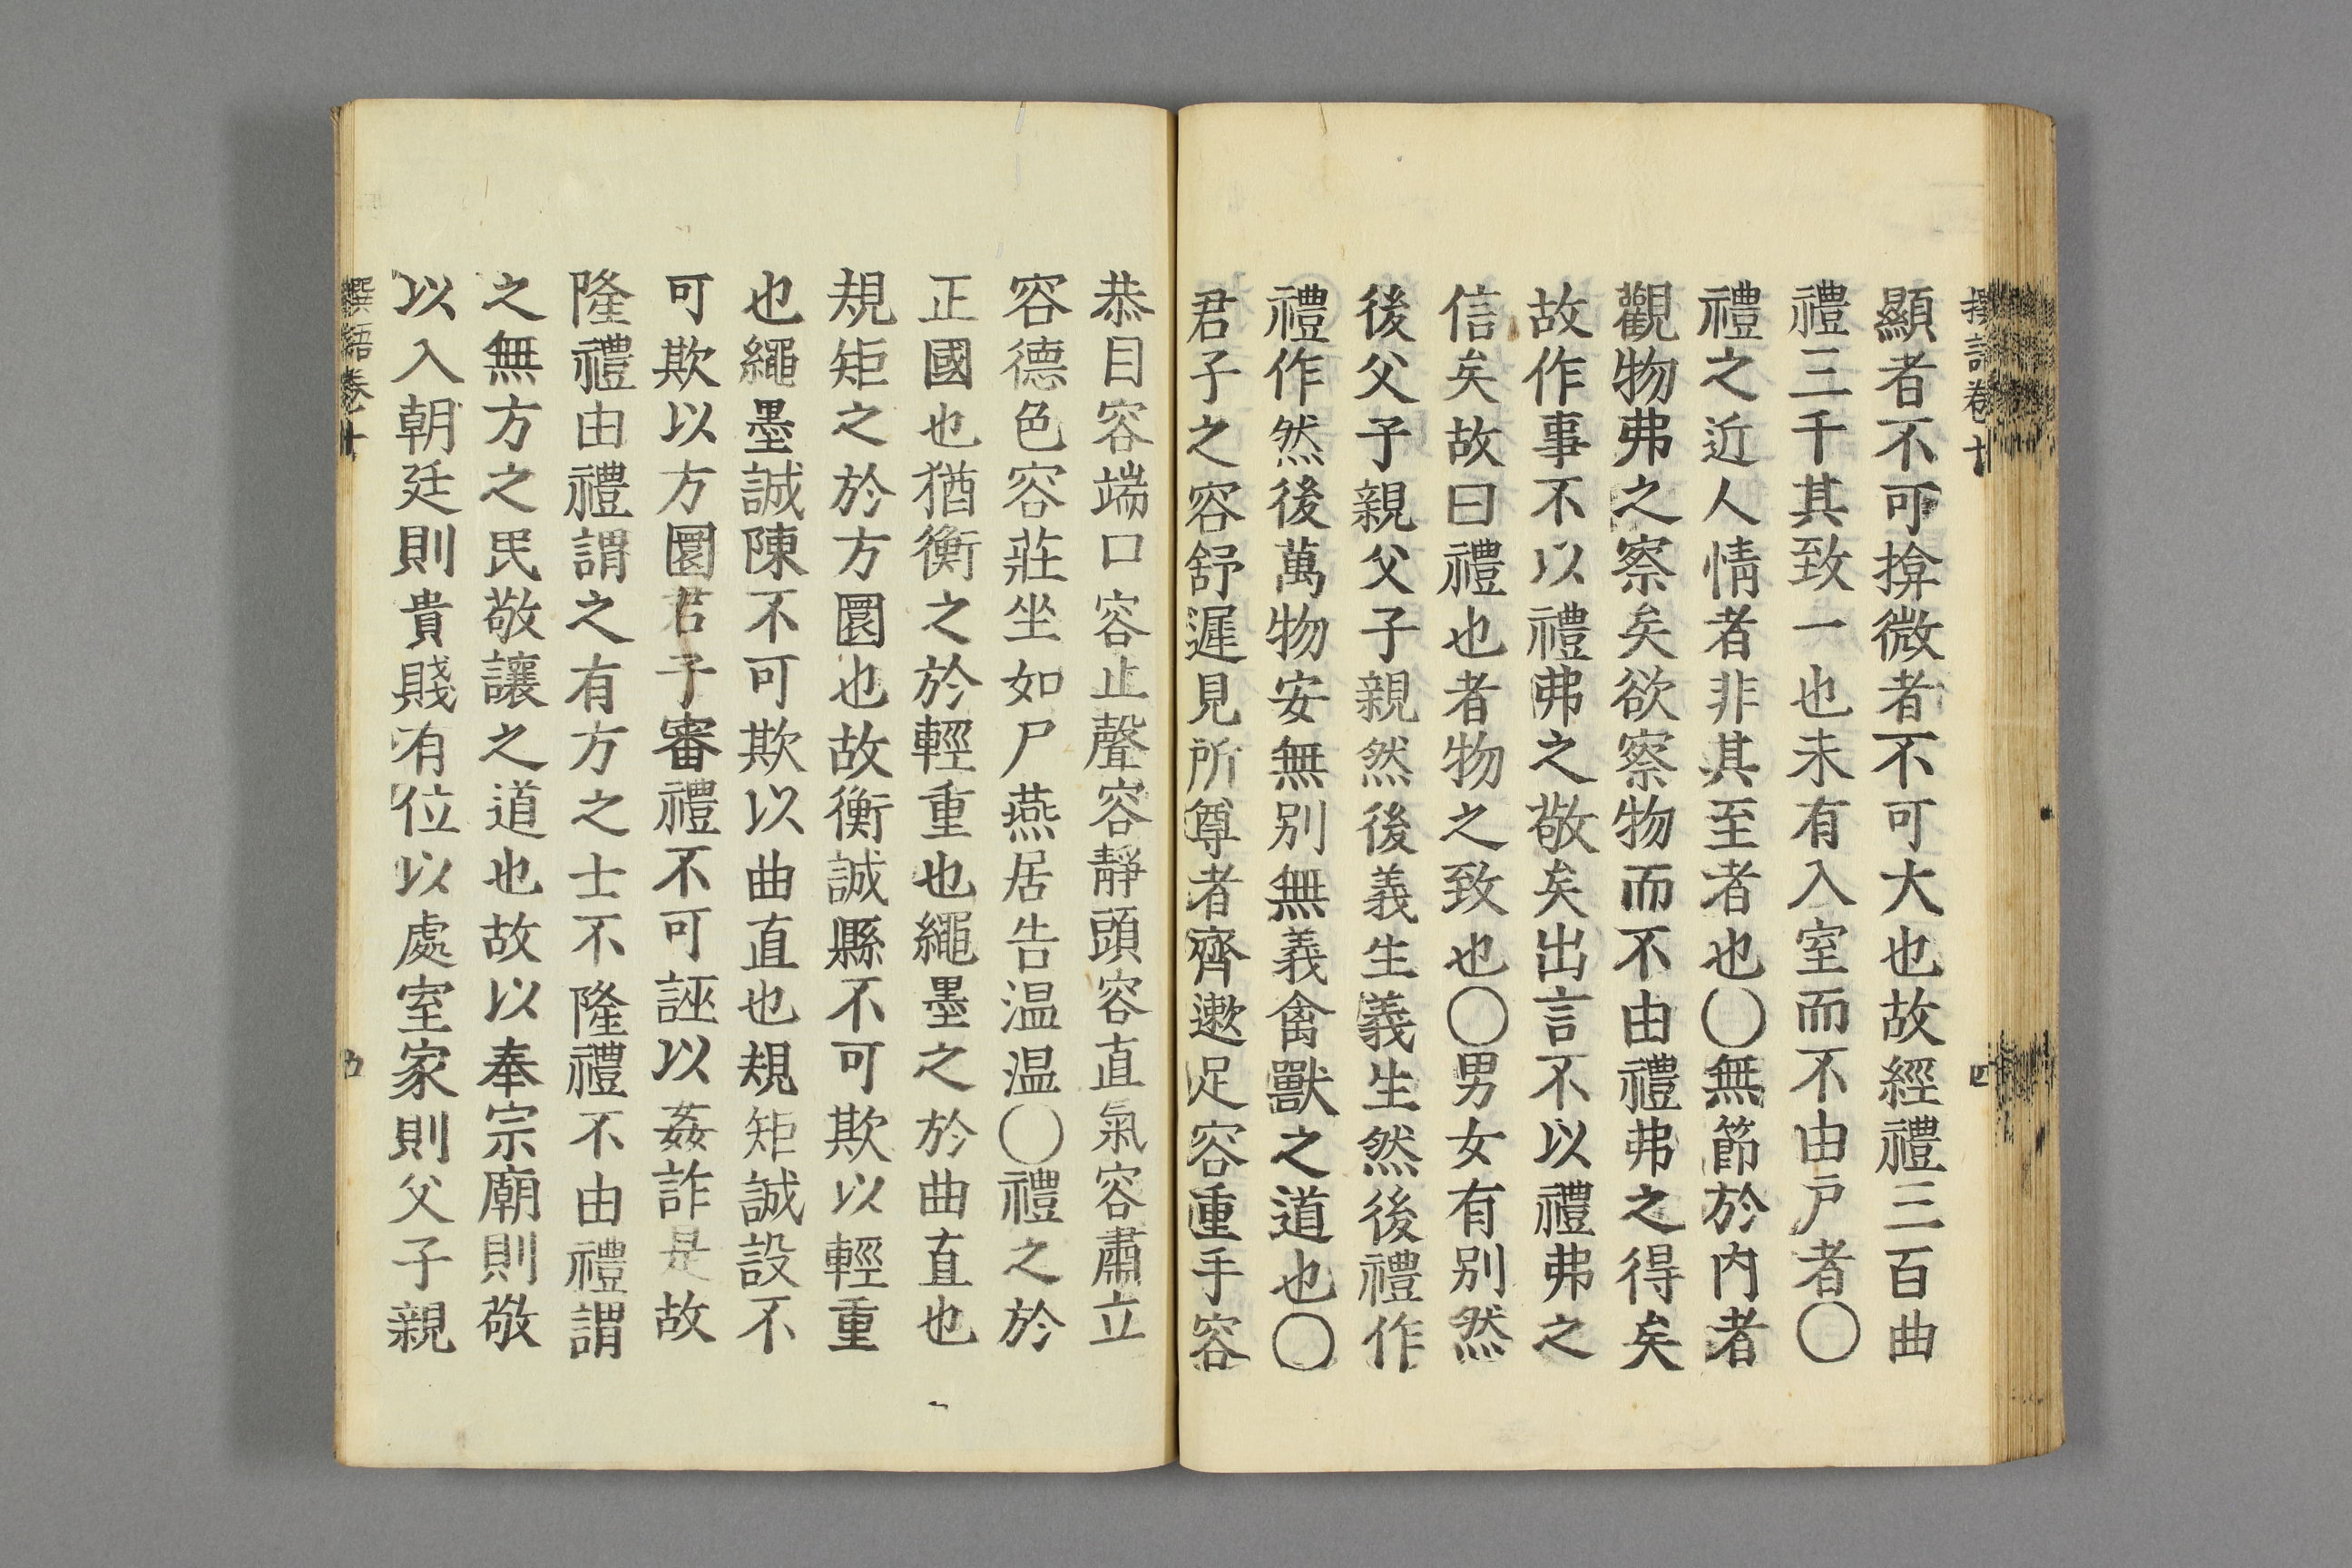 撰語卷十
四
顯者不可揜微者不可大也故經禮三百曲
禮三千其致一也未有入室而不由戸者〇
禮之近人情者非其至者也〇無節於内者
觀物弗之察矣欲察物而不由禮弗之得矣
故作事不以禮弗之敬矣出言不以禮弗之
信矣故曰禮也者物之致也〇男女有别然
後父子親父子親然後義生義生然後禮作
禮作然後萬物安無別無義禽獸之道也〇
君子之容舒遲見所尊者齊遬足容重手容
恭目容端口容止聲容靜頭容直氣容肅立
容德色容莊坐如尸燕居告温温〇禮之於
正國也猶衡之於輕重也繩墨之於曲直也
規矩之於方圜也故衡誠縣不可欺以輕重
也繩墨誠陳不可欺以曲直也規矩誠設不
可欺以方圜君子審禮不可誣以姦詐是故
隆禮由禮謂之有方之士不隆禮不由禮謂
之無方之民敬讓之道也故以奉宗廟則敬
以入朝廷則貴賤有位以處室家則父子親
撰語卷十